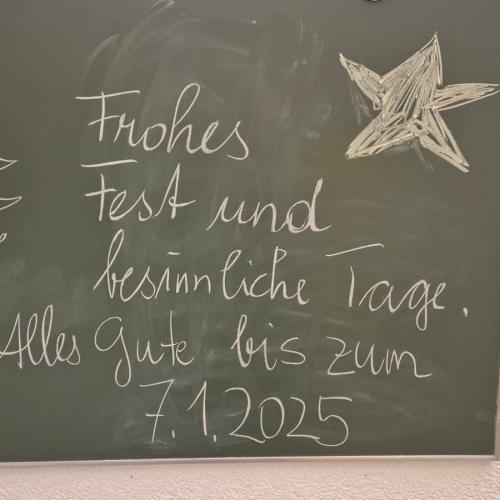 Frohes
Fest und
besinnliche Tage.
Alles Gute bis zum
7.1.2025